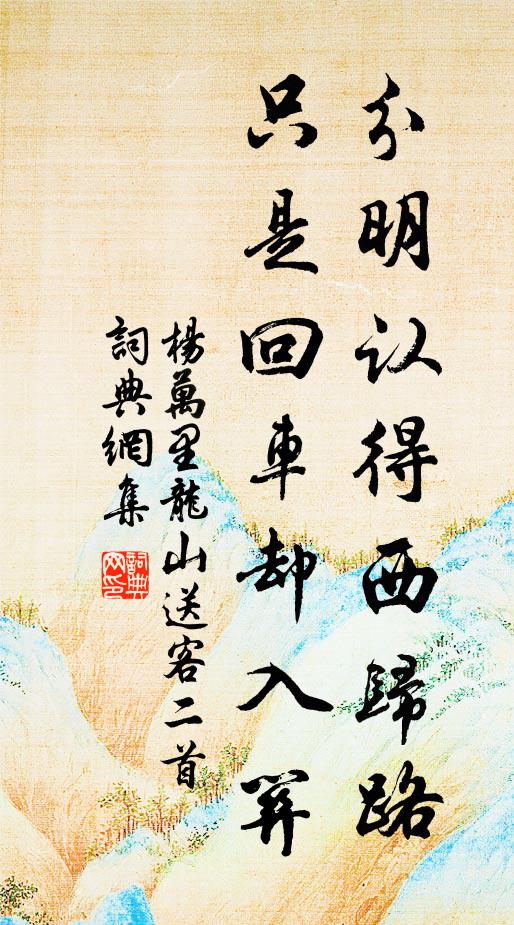 分明认得西歸路
只是回車却入關
楊萬里龍山送客二首
詞典網集
詞典网印